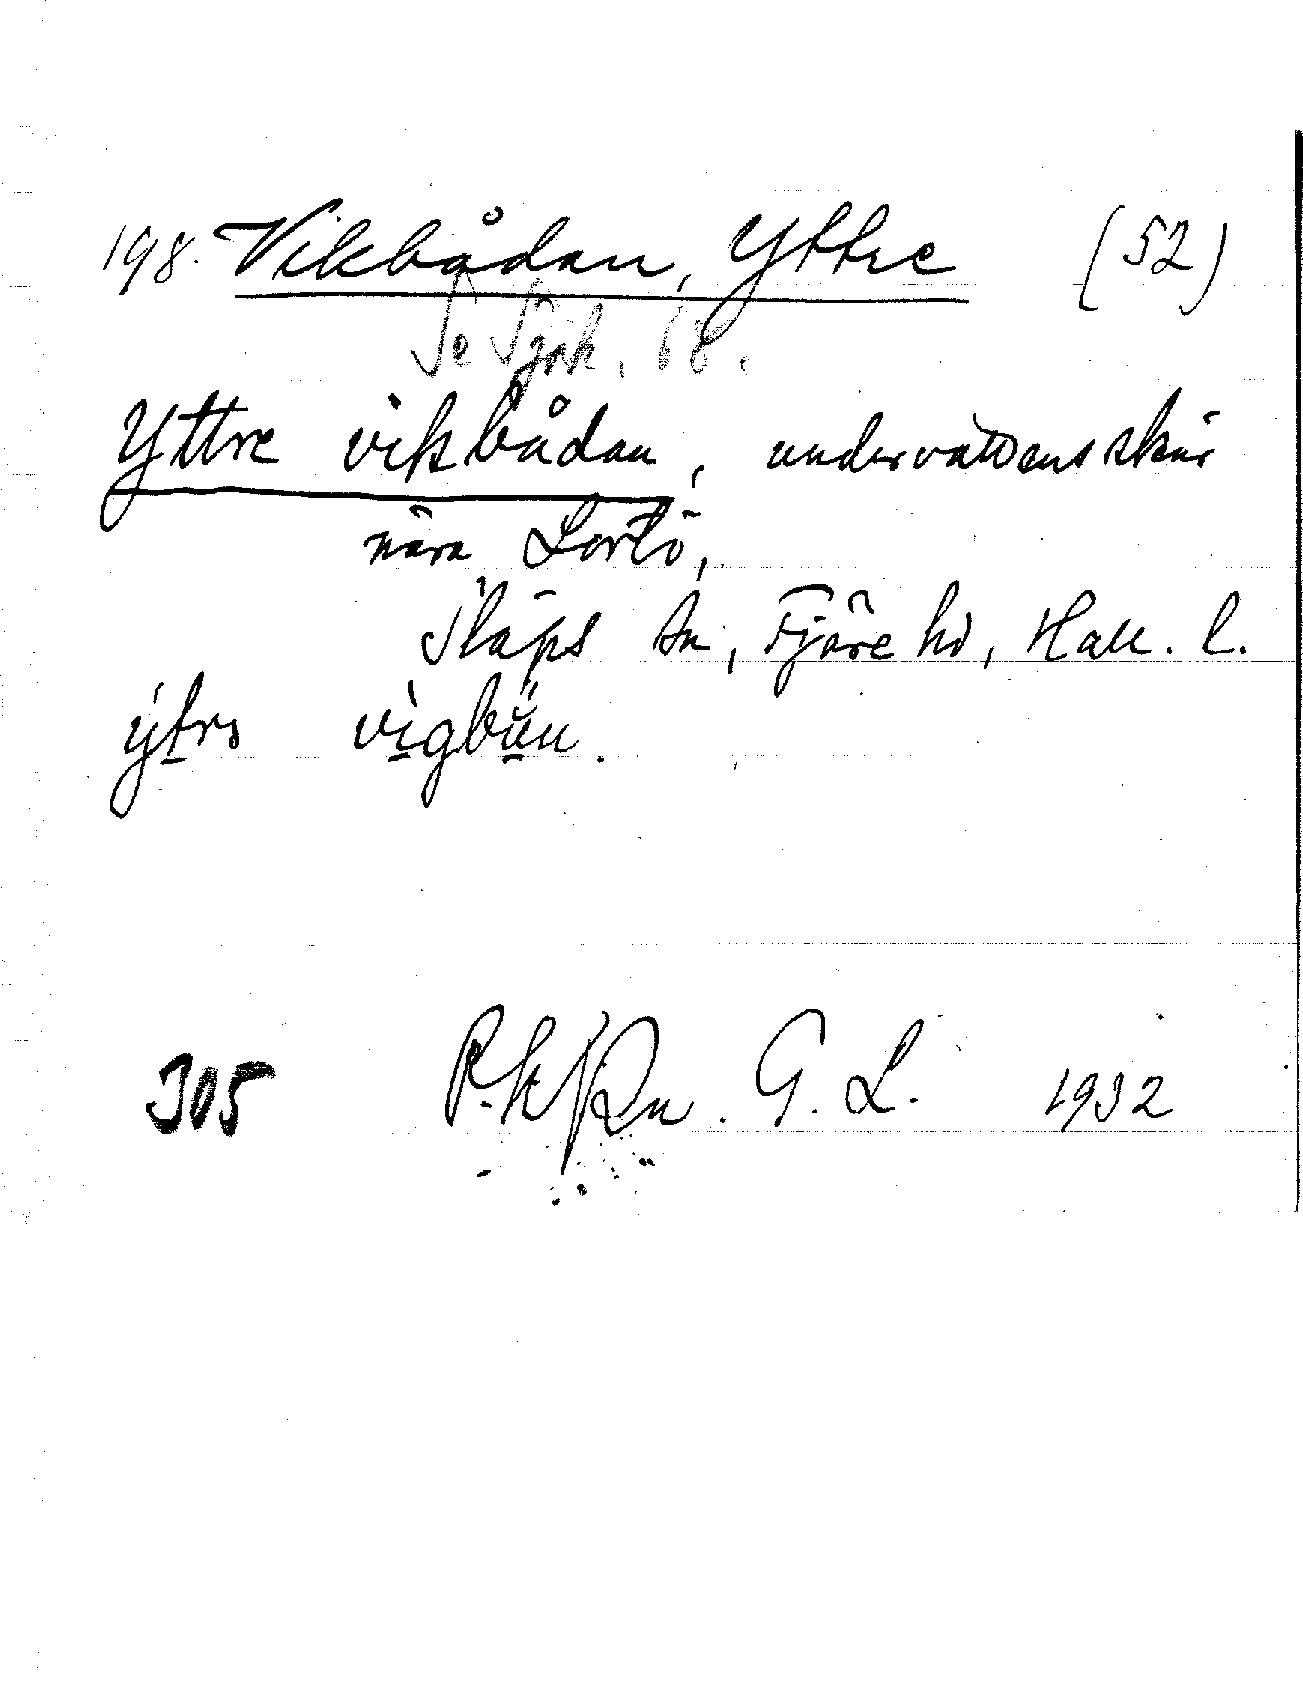 198. Vikbådan, Yttre (52)
Se Sjök. 68.
Yttre vikbådan, undervattensskär
nära Lortö,
Släps sn, Fjäre hd, Hall. l.
vigbån.
305 G. L. 1932